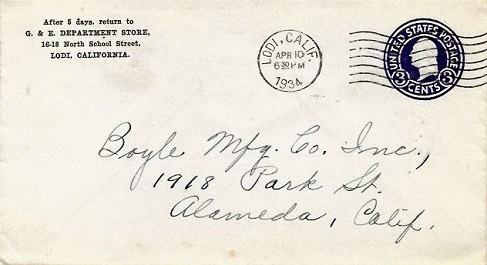 After 5 days, return to
G. & E. DEPARTMENT STORE,
16-18 North School Street,
LODI, CALIFORNIA.
LODI, CALIF.
APR 10
6 30 PM
1934
UNITED STATES POSTAGE
3 CENTS 3
Boyle Mfg. Co. Inc.,
1918 Park St.
Alameda, Calif.